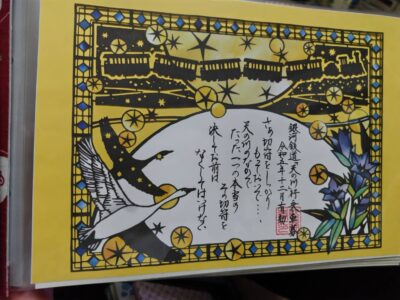 銀河鉄道「天の川」行き乗車券
令和五年十二月
さあ切符をしっかり
もっておいで…。
天の川のなかで
たった一つの本当の
その切符を
決してお前は
なくしてはいけない。